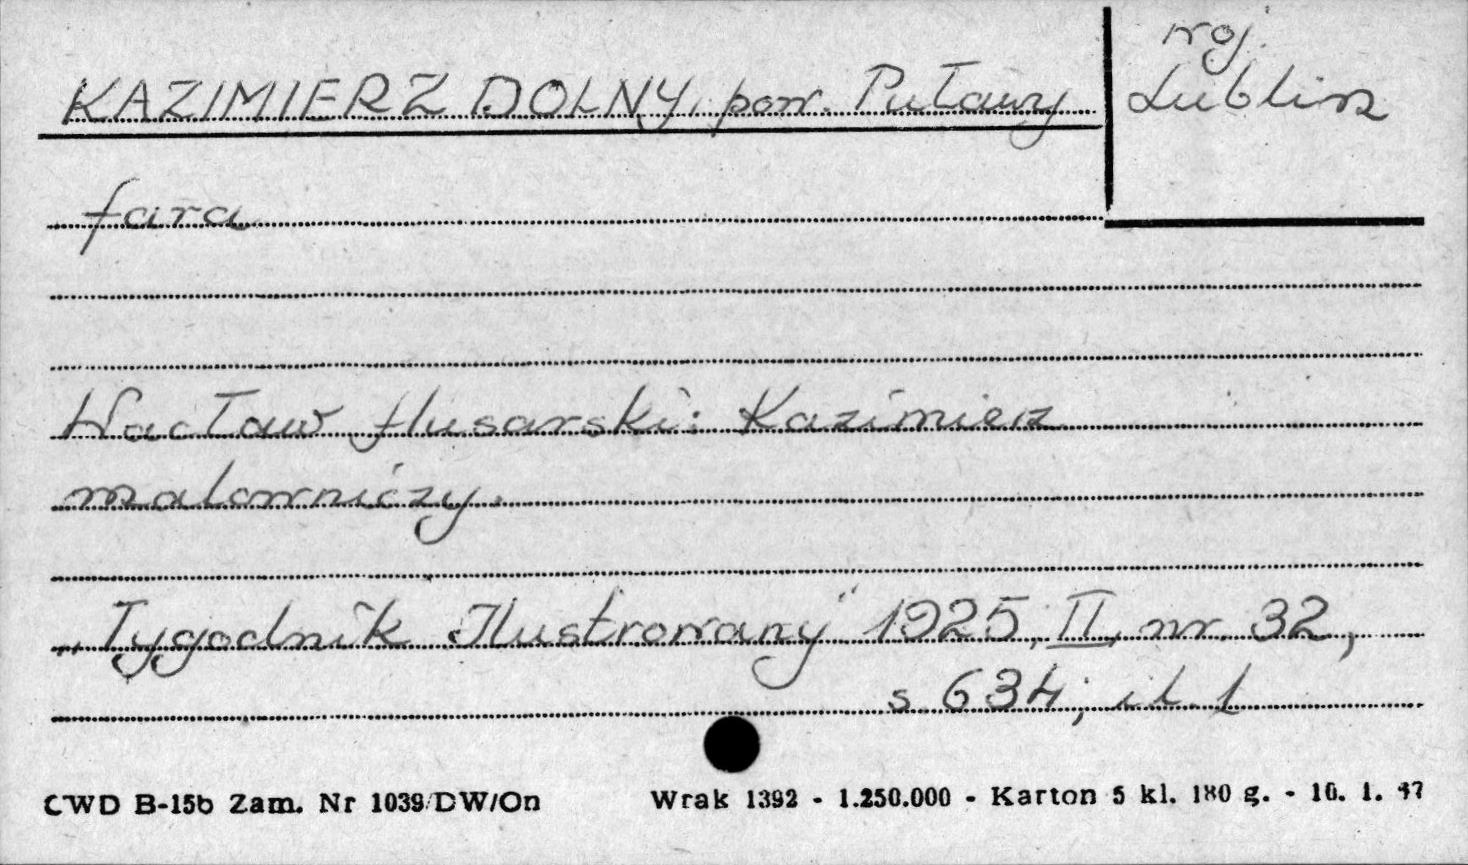 KAZIMIERZ DOLNY, pow. Puławy
woj.
Lublin
fara
Wacław Husarski: Kazimierz
malowniczy.
„Tygodnik Ilustrowany" 1925, II, nr. 32,
s. 634; il. 1
CWD B-15b Zam. Nr 1039/DW/On
Wrak 1392 - 1.250.000 - Karton 5 kl. 180 g. - 10. 1. 47